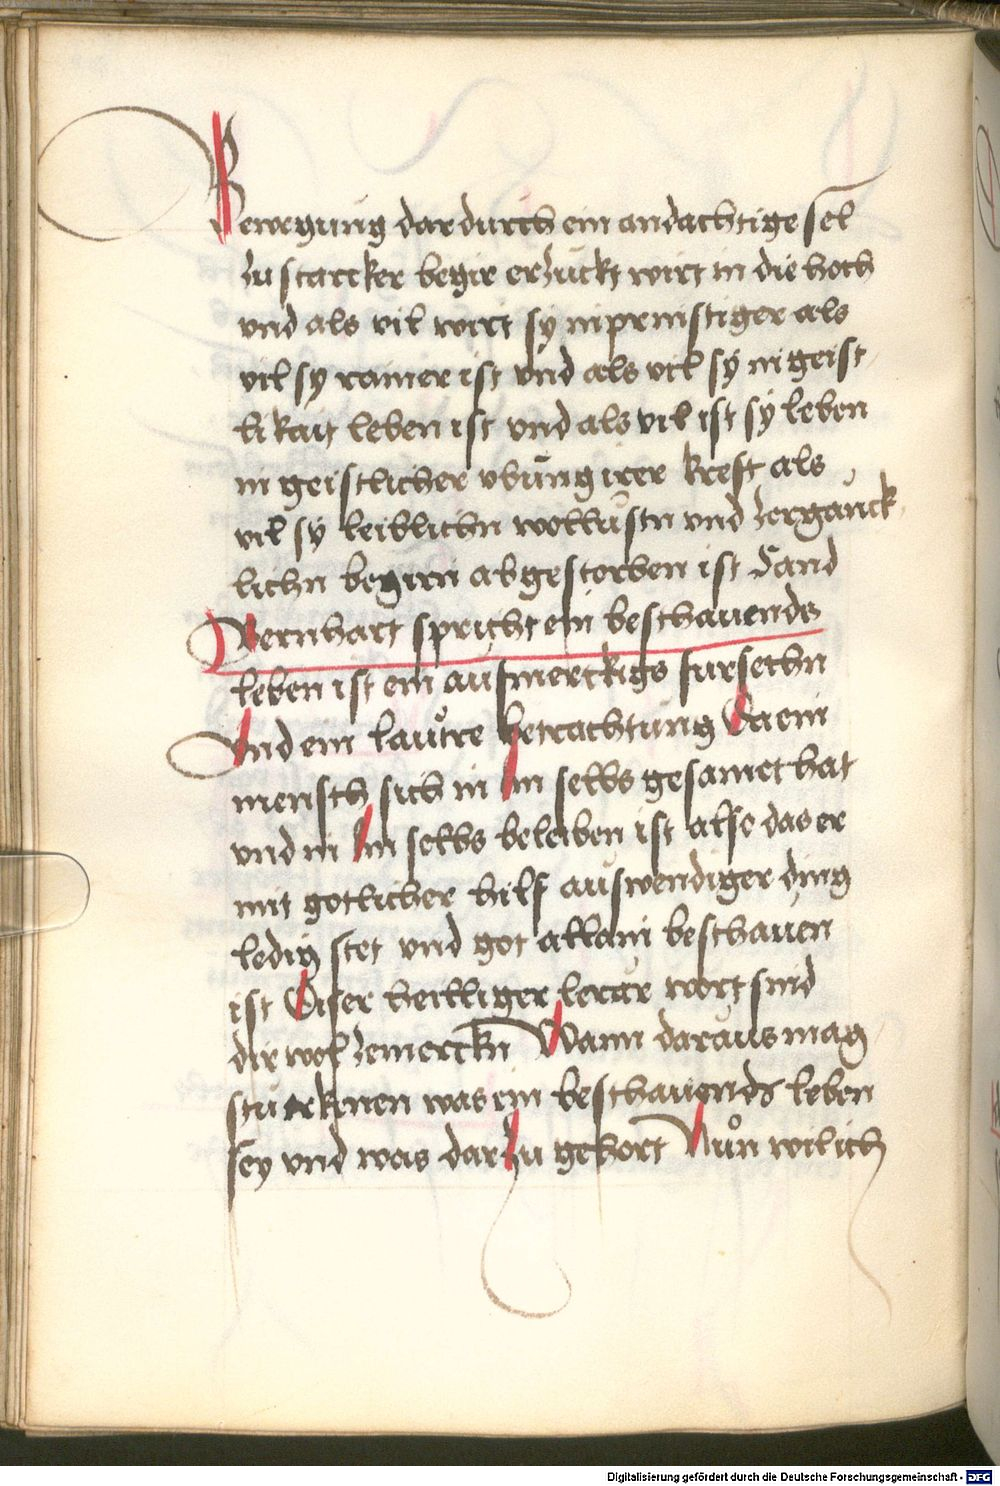 Bewegung dardurch ein andachtige sel
zu starcker begir erzuckt wirt in die hoch
vnd als vil wirt sy inprinstiger als
vil sy rainer ist vnd als vil sy in geist
likait leben ist vnd als vil ist sy leben
in geistlicher vbung irer kreft als
vil sy leiblichn wollustn vnd zerganck
lichn begirn abgestorben ist Sand
Bernhart spricht ein beschauends
leben ist ein aufmerckigs fursechn
Vnd ein lautre betrachtung Da ein
mensch sich in Im selbs gesamet hat
vnd in Im selbs beleiben ist also das er
mit gotlicher hilf auswendiger ding
ledig stet vnd got allain beschauen
ist Diser heilliger lerar wort sind
dir wol zemerckn Wann daraus mag
stu erkenen was ein beschauends leben
sey vnd was darzu gehort Nuͦn wil ich
Digitalisierung gefördert durch die Deutsche Forschungsgemeinschaft - DFG